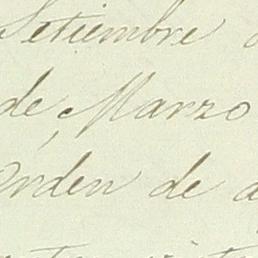 Setiembre
de Marzo
Orden de